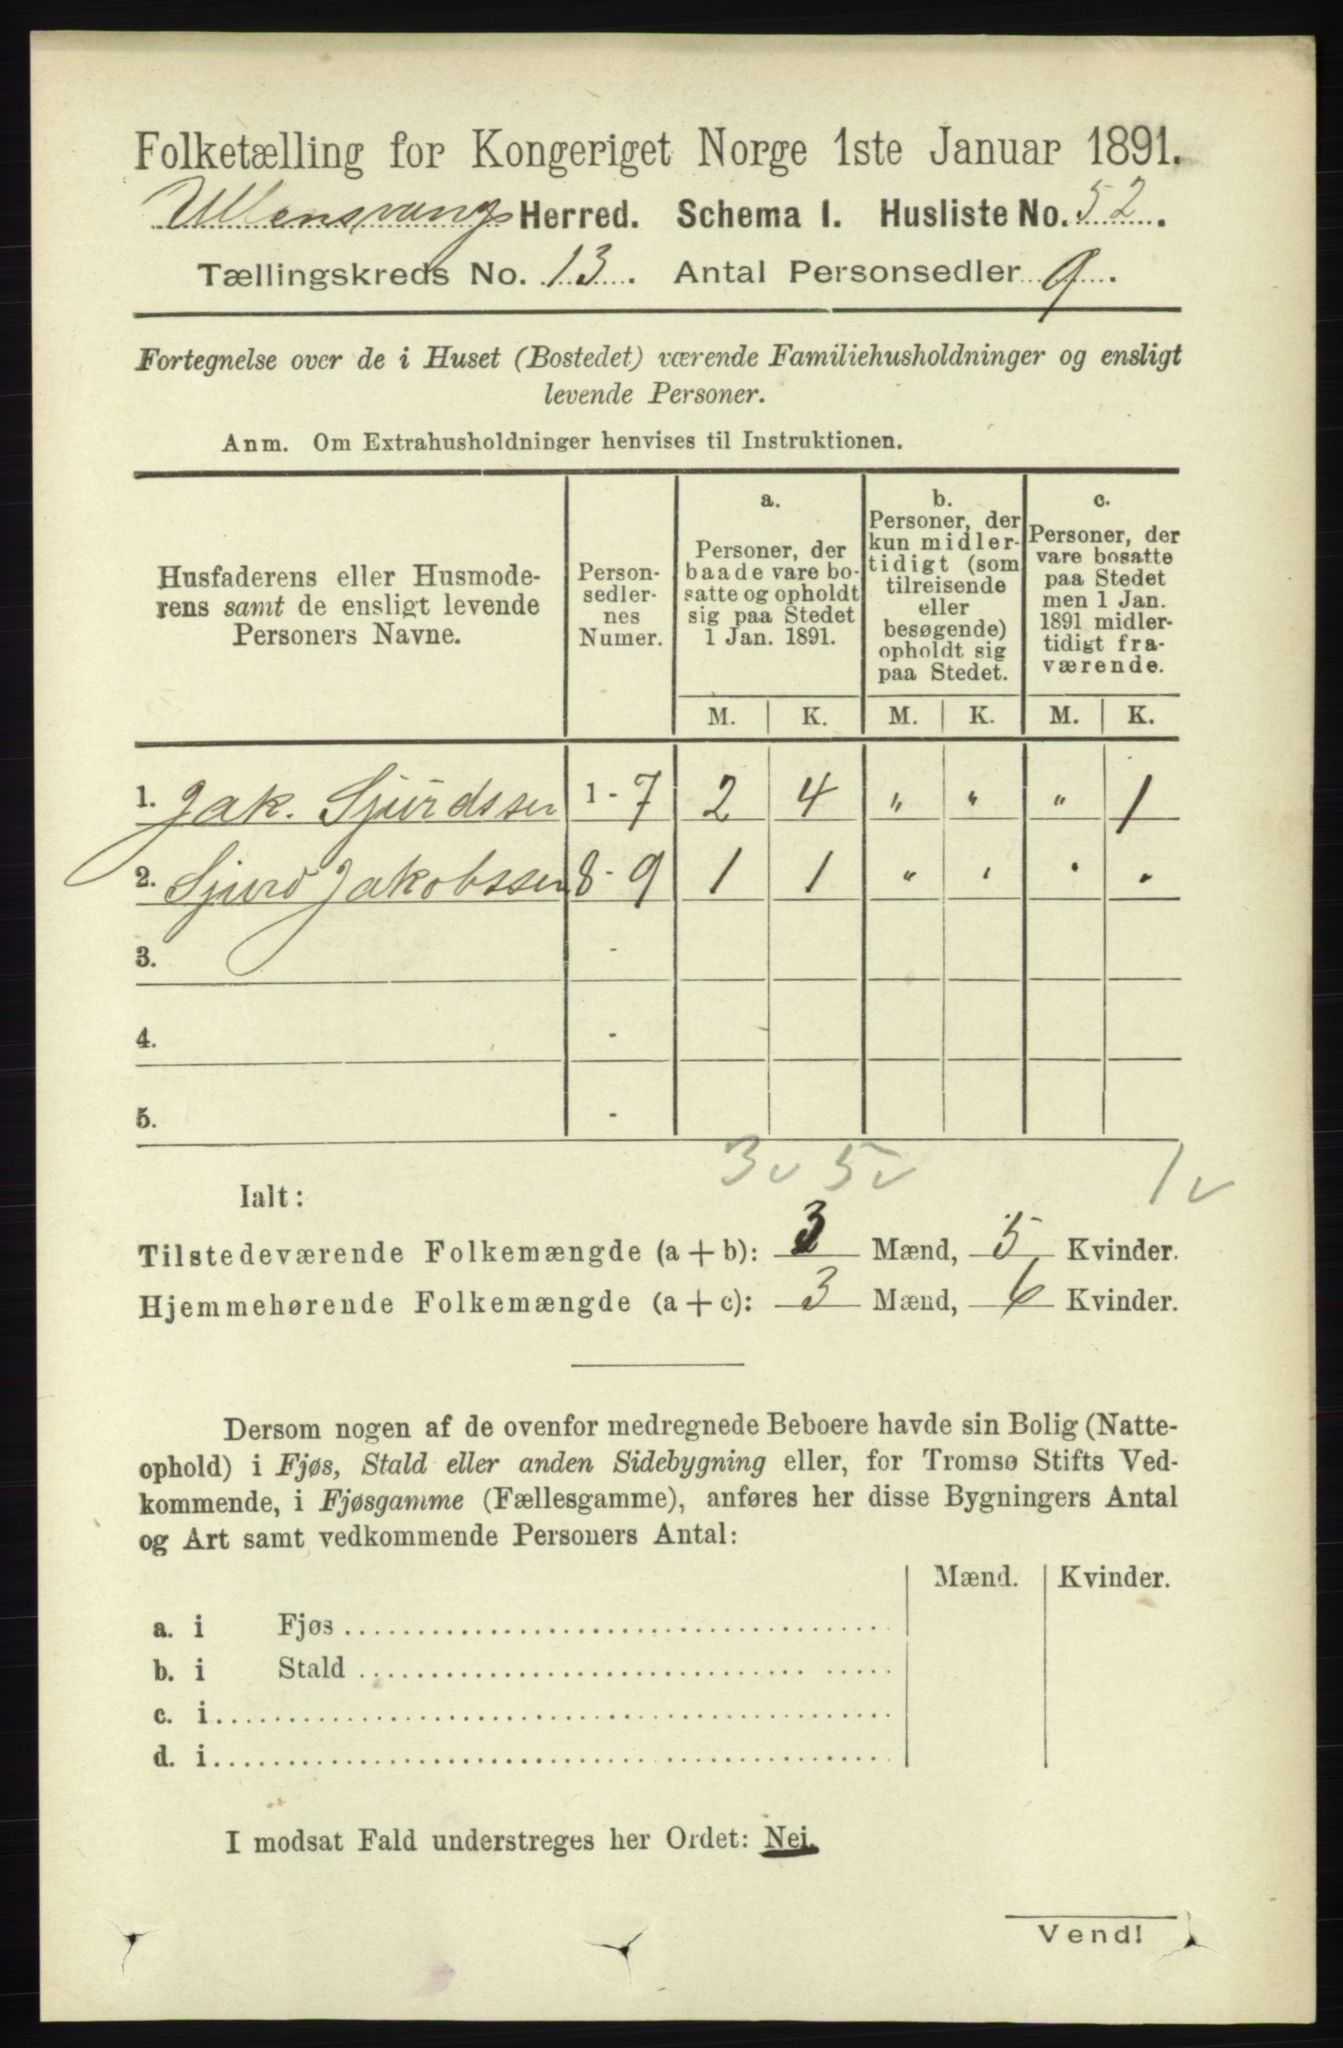 Folketælling for Kongeriget Norge 1ste Januar 1891.
Ullensvang Herred. Schema I. Husliste No. 52.
Tællingskreds No. 13. Antal Personsedler 9.
Fortegnelse over de i Huset (Bostedet) værende Familiehusholdninger og ensligt
levende Personer.
Anm. Om Extrahusholdninger henvises til Instruktionen.
Husfaderens eller Husmode-
rens samt de ensligt levende
Personers Navne.
Person-
sedler-
nes
Numer.
a.
Personer, der
baade vare bo-
satte og opholdt
sig paa Stedet
1 Jan. 1891.
b.
Personer, der
kun midler-
tidigt (som
tilreisende
eller
besøgende)
opholdt sig
paa Stedet.
c.
Personer, der
vare bosatte
paa Stedet
men 1 Jan.
1891 midler-
tidigt fra-
værende.
M. K. M. K. M. K.
1. Jak. Sjurdssen 1 - 7 2 4 " " " 1
2. Sjurd Jakobssen 8 - 9 1 1 " " " "
3. -
4. -
5. -
3 v 5 v 1 v
Ialt:
Tilstedeværende Folkemængde (a + b): 3 Mænd, 5 Kvinder.
Hjemmehørende Folkemængde (a + c): 3 Mænd, 6 Kvinder.
Dersom nogen af de ovenfor medregnede Beboere havde sin Bolig (Natte-
ophold) i Fjøs, Stald eller anden Sidebygning eller, for Tromsø Stifts Ved-
kommende, i Fjøsgamme (Fællesgamme), anføres her disse Bygningers Antal
og Art samt vedkommende Personers Antal:
Mænd. Kvinder.
a. i Fjøs
b. i Stald
c. i
d. i
I modsat Fald understreges her Ordet: Nei.
Vend!